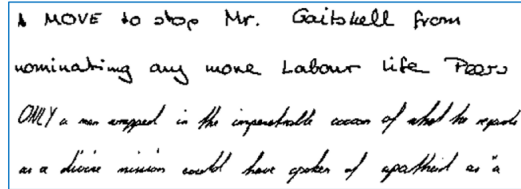 A MOVE to stop Mr. Gaitskell from
nominating any more Labour life Peers
ONLY a man wrapped in the impenetrable cocoon of what he regards
as a divine mission could have spoken of apartheid as "a